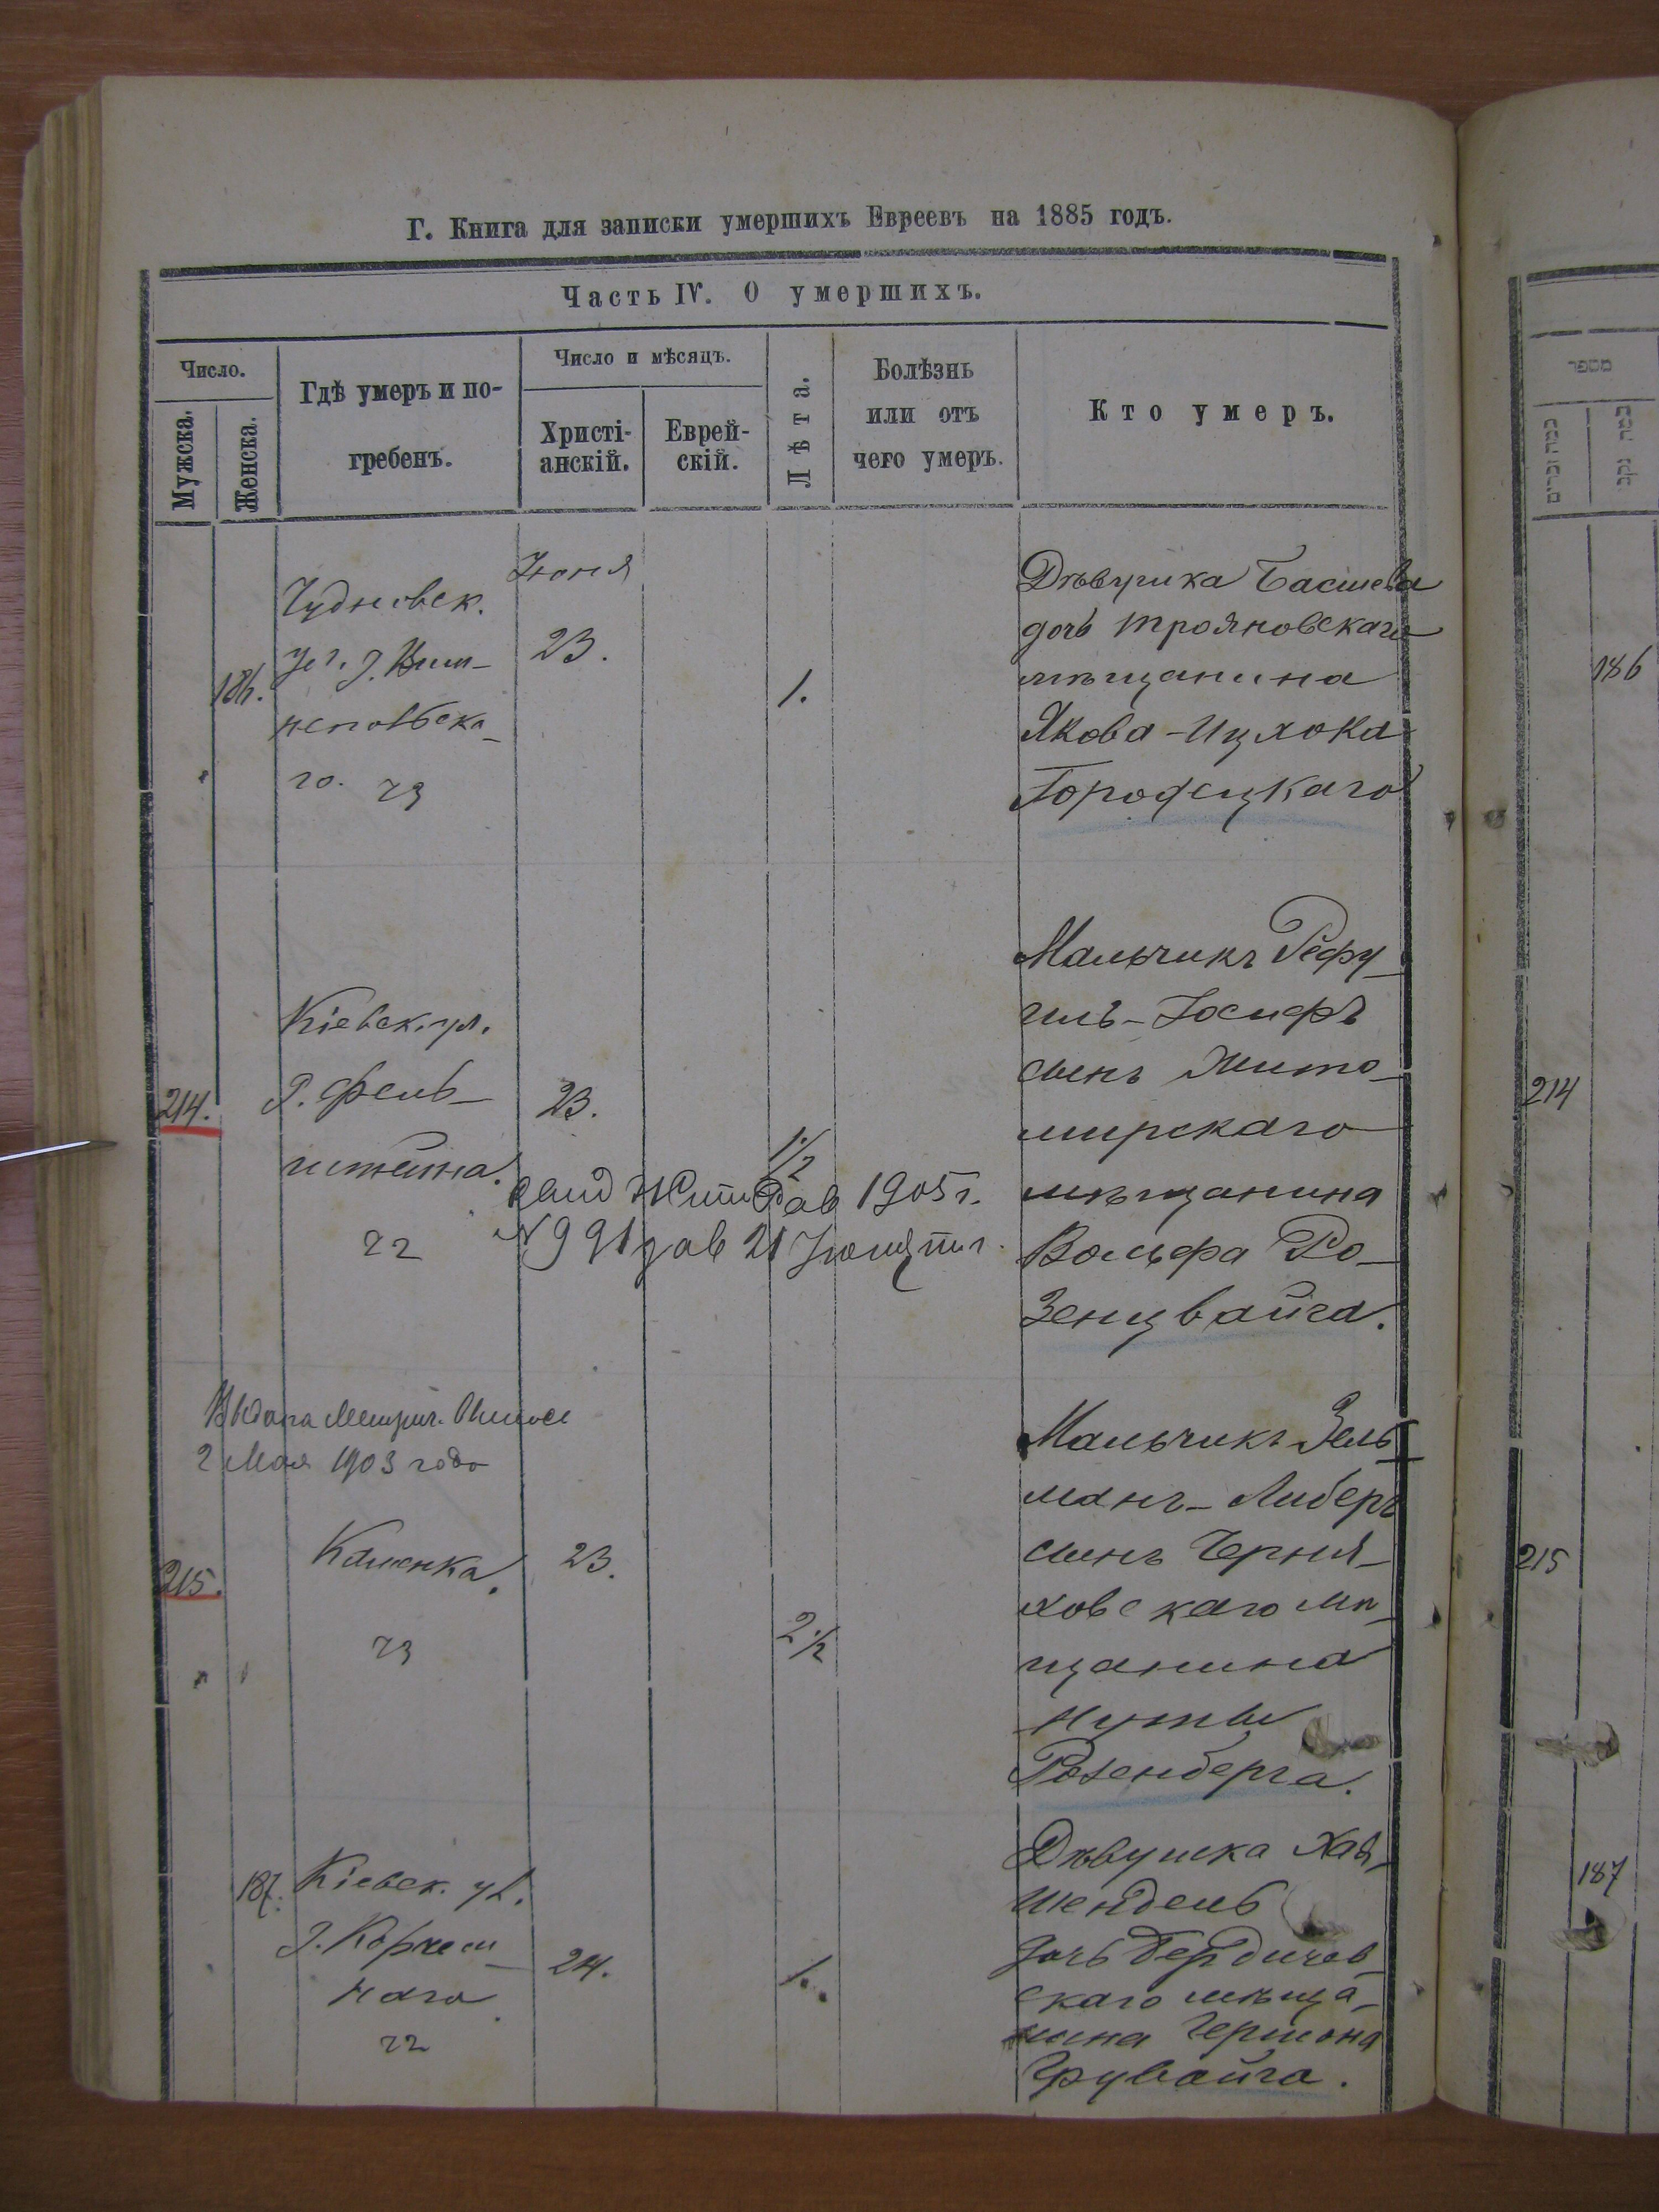 Г. Книга для записки умершихъ Евреевъ на 1885 годъ.
Часть IV. О умершихъ.
Число.
Мужска.
Женска.
Гдѣ умеръ и по-
гребенъ.
Число и мѣсяцъ.
Христі-
анскій.
Еврей-
скій.
Лѣта.
Болѣзнь
или отъ
чего умеръ.
Кто умеръ.
186.
Чудновск.
го.
Іюня
23.
1.
Дѣвушка Басшева
дочь Трояновскаго
мѣщанина
Якова-Ицхока
Городецкаго
214.
Кіевск. ул.
Фель-
штейна.
23.
1/2
1905 г.
N 991
21
Мальчикъ Рефу-
иль-Іосифъ
сынъ Жито-
мирскаго
мѣщанина
Вольфа Ро-
зенцвайга.
Выдана Метрич. Выпись
2 Мая 1903 года
215.
Каменка.
23.
2 1/2
Мальчикъ Зель-
манъ-Либеръ
сынъ Черня-
ховскаго мѣ-
щанина
Нуты
Розенберга.
187.
Кіевск. ул.
наго
24.
1.
Дѣвушка Хая-
Шендель
дочь Бердичев-
скаго мѣща-
нина Гершона
מספר
186
214
215
187